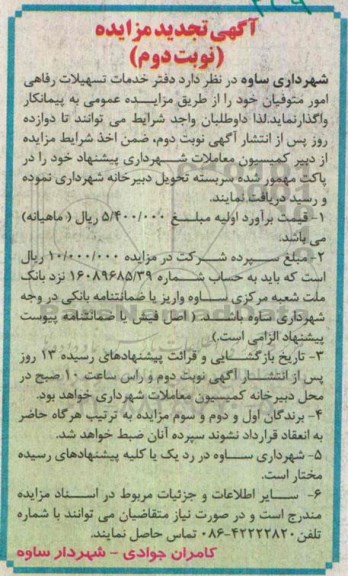 ۳۲۹
آگهی تجدید مزایده
(نوبت دوم)
شهرداری ساوه در نظر دارد دفتر خدمات تسهیلات رفاهی
امور متوفیان خود را از طریق مزایده عمومی به پیمانکار
واگذار نماید.لذا داوطلبان واجد شرایط می توانند تا دوازده
روز پس از انتشار آگهی نوبت دوم، ضمن اخذ شرایط مزایده
از دبیر کمیسیون معاملات شهرداری پیشنهاد خود را در
پاکت مهمور شده سربسته تحویل دبیرخانه شهرداری نموده
و رسید دریافت نمایند.
۱- قیمت برآورد اولیه مبلغ ۵/۴۰۰/۰۰۰ ریال ( ماهیانه)
می باشد.
۲- مبلغ سپرده شرکت در مزایده ۱۰/۰۰۰/۰۰۰ ریال
است که باید به حساب شماره ۱۶۰۸۹۶۸۵/۳۹ نزد بانک
ملت شعبه مرکزی ساوه واریز یا ضمانتنامه بانکی در وجه
شهرداری ساوه باشد. ( اصل فیش یا ضمانتنامه پیوست
پیشنهاد الزامی است.)
۳- تاریخ بازگشایی و قرائت پیشنهادهای رسیده ۱۳ روز
پس از انتشار آگهی نوبت دوم و راس ساعت ۱۰ صبح در
محل دبیرخانه کمیسیون معاملات شهرداری خواهد بود.
۴- برندگان اول و دوم و سوم مزایده به ترتیب هرگاه حاضر
به انعقاد قرارداد نشوند سپرده آنان ضبط خواهد شد.
۵- شهرداری ساوه در رد یک یا کلیه پیشنهادهای رسیده
مختار است.
۶- سایر اطلاعات و جزئیات مربوط در اسناد مزایده
مندرج است و در صورت نیاز متقاضیان می توانند با شماره
تلفن ۴۲۲۲۲۸۲۰-۰۸۶ تماس حاصل نمایند.
کامران جوادی - شهردار ساوه